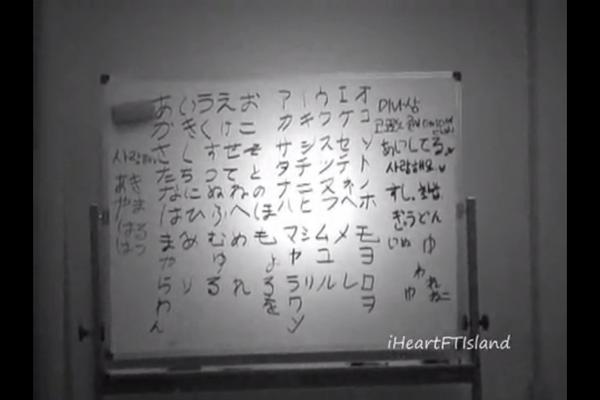 あいうえお
かきくけこ
さしすせそ
たちつてと
なにぬねの
はひふへほ
まみむめも
や ゆ よ
らりるれろ
わ を
ん
アイウエオ
カキクケコ
サシスセソ
タチツテト
ナニヌネノ
ハヒフヘホ
マミムメモ
ヤ ユ ヨ
ラリルレロ
ワ ヲ
ン
사랑해
あき
やま
はる
미나상
あいしてる
사랑해요
すし, 초밥
ぎうどん
いぬ ゆ
わ れ
ゆ ねこ
iHeartFTIsland